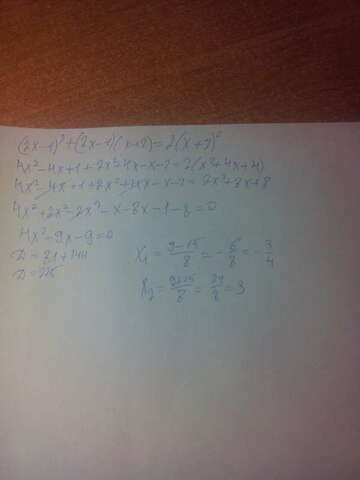 (2x-1)²+(2x-1)(x+2)=2(x+2)²
4x²-4x+1+2x²+4x-x-2=2(x²+4x+4)
4x²-4x+1+2x²+4x-x-2=2x²+8x+8
4x²+2x²-2x²-x-8x-1-8=0
4x²-9x-9=0
D=81+144
D=225
x₁=(9-15)/8=-6/8=-3/4
x₂=(9+15)/8=24/8=3